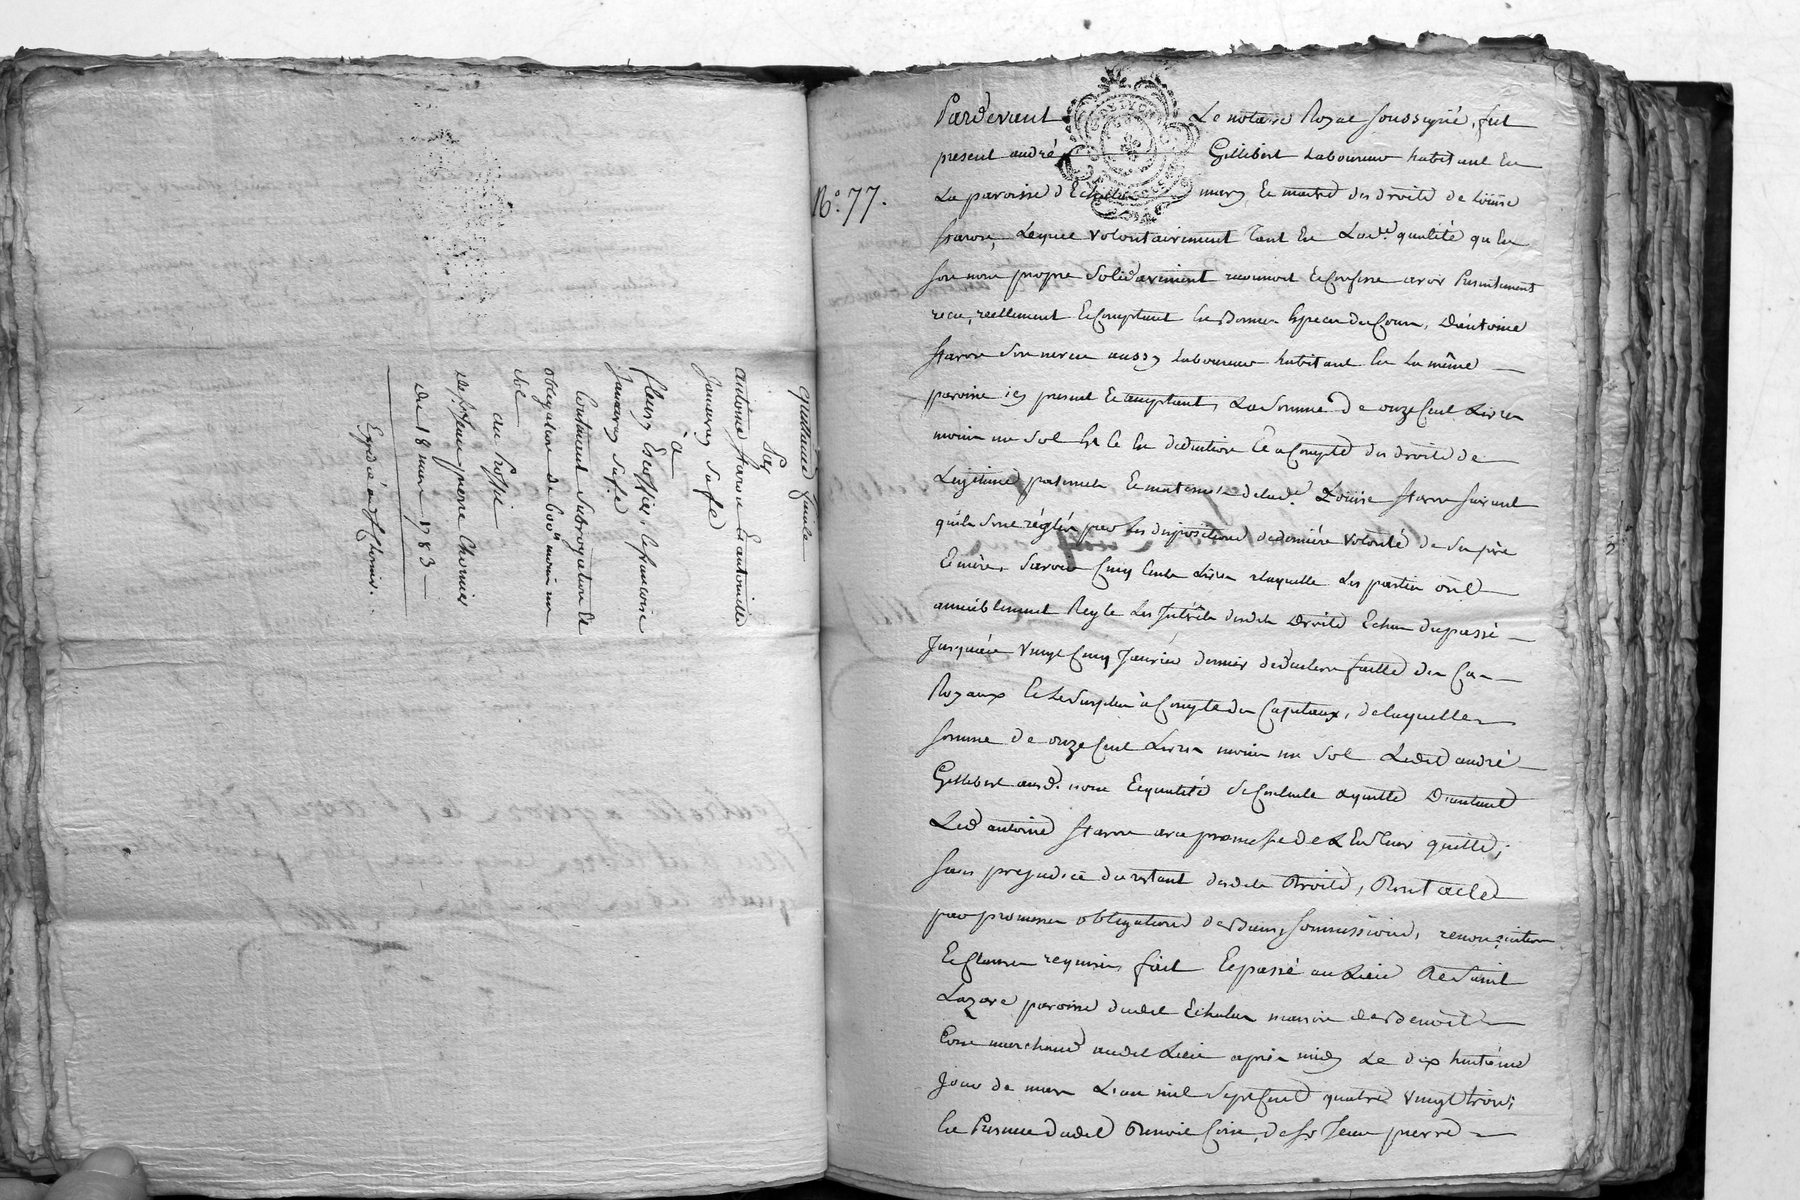 quittance finale
Par
antoine staron Et antoinette
Januarey sa fe
a
fleury Escoffier, & francoise
Januarey sa fe
Contenant subrogation Et
obligation de 600ll moins un
sol
au Proffit
de sr jean pierre Chomier
du 18 mars 1783
Expédié à Mr Chomier.
N.° 77.
Pardevant Le notaire Royal soussigné, fut
present andré Gillibert Laboureur habitant En
La paroisse d'Echalas mary Et maitre des droits de Louise
staron, Lequel volontairement tant En Lade. qualité qu'En
son nom propre solidairement reconnoit Et Confesse avoir Presentement
recu, reellement Et Comptant En Bonnes Especes du Cours, D'antoine
staron son neveu aussy Laboureur habitant En La même
paroisse icy present Et acceptant, La somme de onze Cent Livres
moins un sol Et Ce En deduction Et a Compte des droits de
Legitime paternels Et maternels de lade. Louise starron suivant
qu'ils sont réglés par Les dispositions de derniere volonté de ses père
Et mère, savoir Cinq Cents Livres a laquelle Les parties ont
amiablement Reglé Les Intérêts desdits Droits Echus du passé
Jusques au vingt Cinq Janvier dernier deduction faitte des Cas
Royaux Et Le surplus à Compte des Capitaux, de laquelle
somme de onze Cent Livres moins un sol Ledit andré
Gillibert ausd. nom Et qualité se Contente Et quitte D'autant
Led antoine starron avec promesse de L'En tenir quitte,
sans prejudice du restant desdits Droits, Dont acte
par promesses obligations de Biens, soumissions, renonciations
Et Clauses requises fait Et passé au Lieu De Saint
Lazare paroisse dudit Echalas maison de Benoit
Coin marchand audit Lieu après midy Le dix huitième
Jour de mars L'an mil sept Cent quatre vingt trois;
En Presence dudit Benoit Coin, de sr Jean pierre